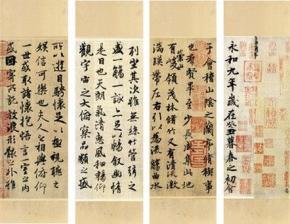 永和九年歲在癸丑暮春之初會
于會稽山陰之蘭亭脩稧事
也羣賢畢至少長咸集此地
有崇山峻領茂林脩竹又有清流激
湍暎帶左右引以為流觴曲水
列坐其次雖無絲竹管弦之
盛一觴一詠亦足以暢叙幽情
是日也天朗氣清惠風和暢仰
觀宇宙之大俯察品類之盛
所以遊目騁懷足以極視聽之
娛信可樂也夫人之相與俯仰
一世或取諸懷抱悟言一室之內
或因寄所託放浪形骸之外雖